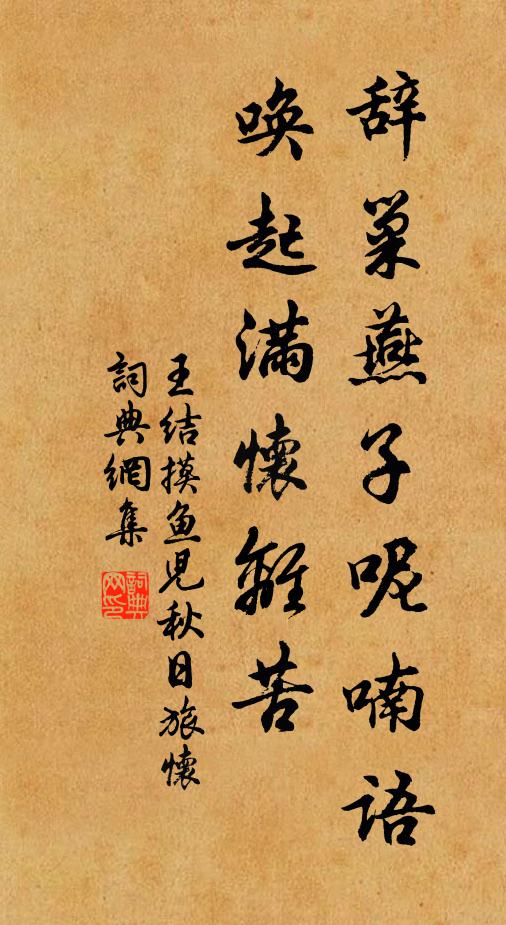 辞巢燕子呢喃语
唤起满懷離苦
王结摸鱼児秋日旅懷
詞典網集
詞典网印